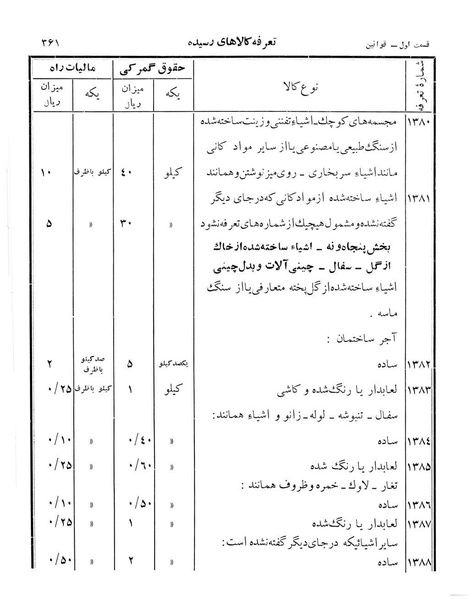 قسمت اول ـ قوانین تعرفه کالاهای رسیده ۳۶۱
شمارهٔ تعرفه نوع کالا حقوق گمرکی مالیات راه
یکه میزان ریال یکه میزان ریال
۱۳۸۰ مجسمه‌های کوچك ـ اشیاء تفننی و زینت ساخته‌شده
از سنگ طبیعی یا مصنوعی یا از سایر مواد کانی
مانند اشیاء سر بخاری ـ روی میز نوشتن و همانند کیلو ۴۰ کیلو باظرف ۱۰
۱۳۸۱ اشیاء ساخته‌شده از مواد کانی که در جای دیگر
گفته نشده و مشمول هیچیك از شماره‌های تعرفه نشود » ۳۰ » ۵
بخش پنجاه و نه ـ اشیاء ساخته‌شده از خاك
از گل ـ سفال ـ چینی آلات و بدل چینی
اشیاء ساخته‌شده از گل پخته متعارفی یا از سنگ
ماسه .
آجر ساختمان :
۱۳۸۲ ساده یکصدکیلو ۵ صدکیلو باظرف ۲
۱۳۸۳ لعابدار یا رنگ شده و کاشی کیلو ۱ کیلو باظرف ۰/۲۵
سفال ـ تنبوشه ـ لوله ـ زانو و اشیاء همانند :
۱۳۸۴ ساده » ۰/۴۰ » ۰/۱۰
۱۳۸۵ لعابدار یا رنگ شده » ۰/۶۰ » ۰/۲۵
تغار ـ لاوك ـ خمره و ظروف همانند :
۱۳۸۶ ساده » ۰/۵۰ » ۰/۱۰
۱۳۸۷ لعابدار یا رنگ شده » ۱ » ۰/۲۵
سایر اشیائیکه در جای دیگر گفته نشده است :
۱۳۸۸ ساده » ۲ » ۰/۵۰